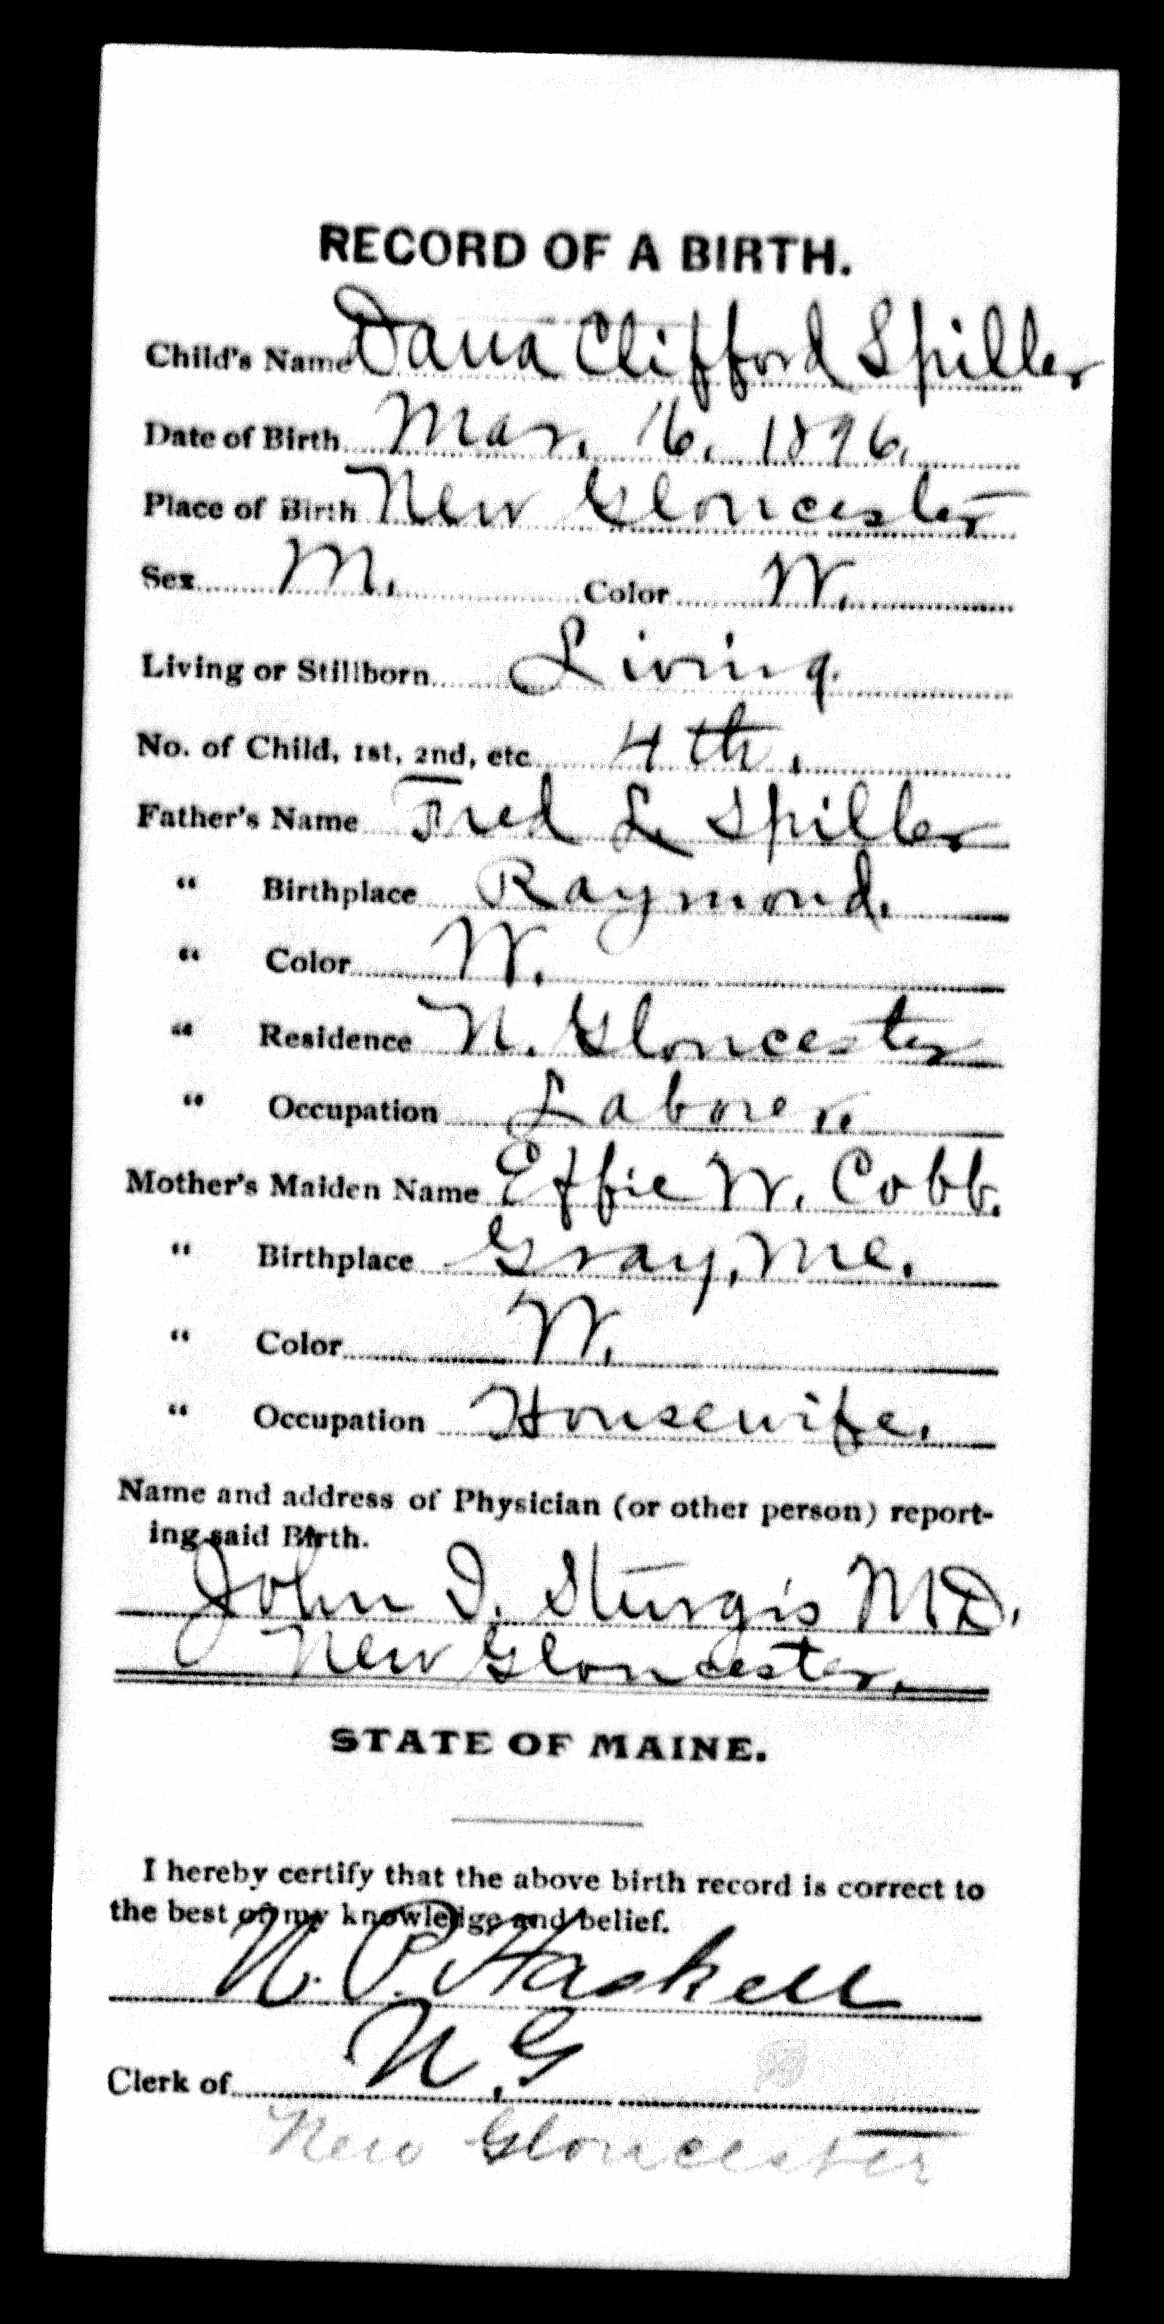 RECORD OF A BIRTH.
Child's Name Dana Clifford Spiller
Date of Birth Mar. 16. 1896.
Place of Birth New Gloucester
Sex M. Color W.
Living or Stillborn Living.
No. of Child, 1st, 2nd, etc. 4th.
Father's Name Fred L Spiller
" Birthplace Raymond.
" Color W.
" Residence N. Gloucester
" Occupation Laborer.
Mother's Maiden Name Effie W. Cobb.
" Birthplace Gray, Me.
" Color W.
" Occupation Housewife.
Name and address of Physician (or other person) report-
ing said Birth.
John I. Sturgis M.D.
New Gloucester.
STATE OF MAINE.
I hereby certify that the above birth record is correct to
the best of my knowledge and belief.
N. P. Haskell
Clerk of N. G
New Gloucester